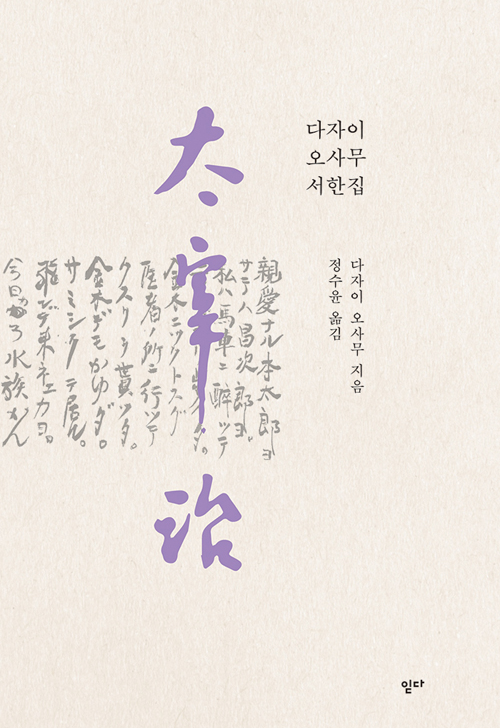 다자이
오사무
서한집
다자이 오사무 지음
정수윤 옮김
太宰治
親愛ナル本太郎ヨ
サラバ昌次郎ヨ。
私ハ馬車ニ酔ッテ
金木ニツクトスグ
医者ノ所ニ行ッテ
クスリヲ貰ッタ。
金木デモかゆダ。
サミシクテ居ル。
今日ハ水族かん
읻다